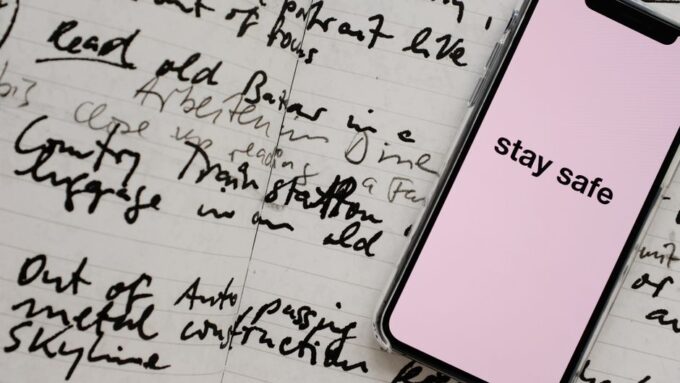 out of portrait live
focus
Read old Bazar in a
Arbeiten in Dine
close up reading a
Country Train station
luggage in an old
Out of Auto passing
metal construction
SKYline
stay safe